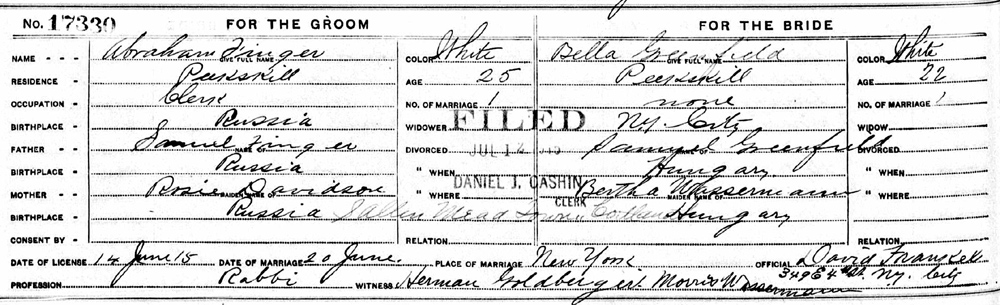 No. 17330 FOR THE GROOM FOR THE BRIDE
NAME Abraham Finger GIVE FULL NAME COLOR White Bella Greenfield GIVE FULL NAME COLOR White
RESIDENCE Peekskill AGE 25 Peekskill AGE 22
OCCUPATION Clerk NO. OF MARRIAGE 1 none NO. OF MARRIAGE 1
BIRTHPLACE Russia WIDOWER FILED N.Y. City WIDOW
FATHER Samuel Finger NAME OF DIVORCED JUL 1915 Samuel Greenfield NAME OF DIVORCED
BIRTHPLACE Russia " WHEN Hungary " WHEN
MOTHER Rosie Davidson MAIDEN NAME OF " WHERE DANIEL J. CASHIN CLERK Bertha Wassermann MAIDEN NAME OF " WHERE
BIRTHPLACE Russia Hungary
CONSENT BY RELATION RELATION
DATE OF LICENSE 14 June 15 DATE OF MARRIAGE 20 June. PLACE OF MARRIAGE New York OFFICIAL David
PROFESSION Rabbi WITNESS Herman Goldberger. Morris Wassermann N.Y. City